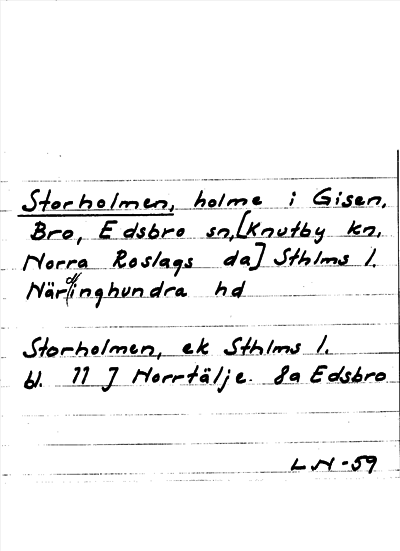 Storholmen, holme i Gisen,
Bro, Edsbro sn, [Knutby kn,
Norra Roslags da] Sthlms l.
Närdinghundra hd
Storholmen, ek Sthlms l.
bl. 11 J Norrtälje. 8a Edsbro
LN-59